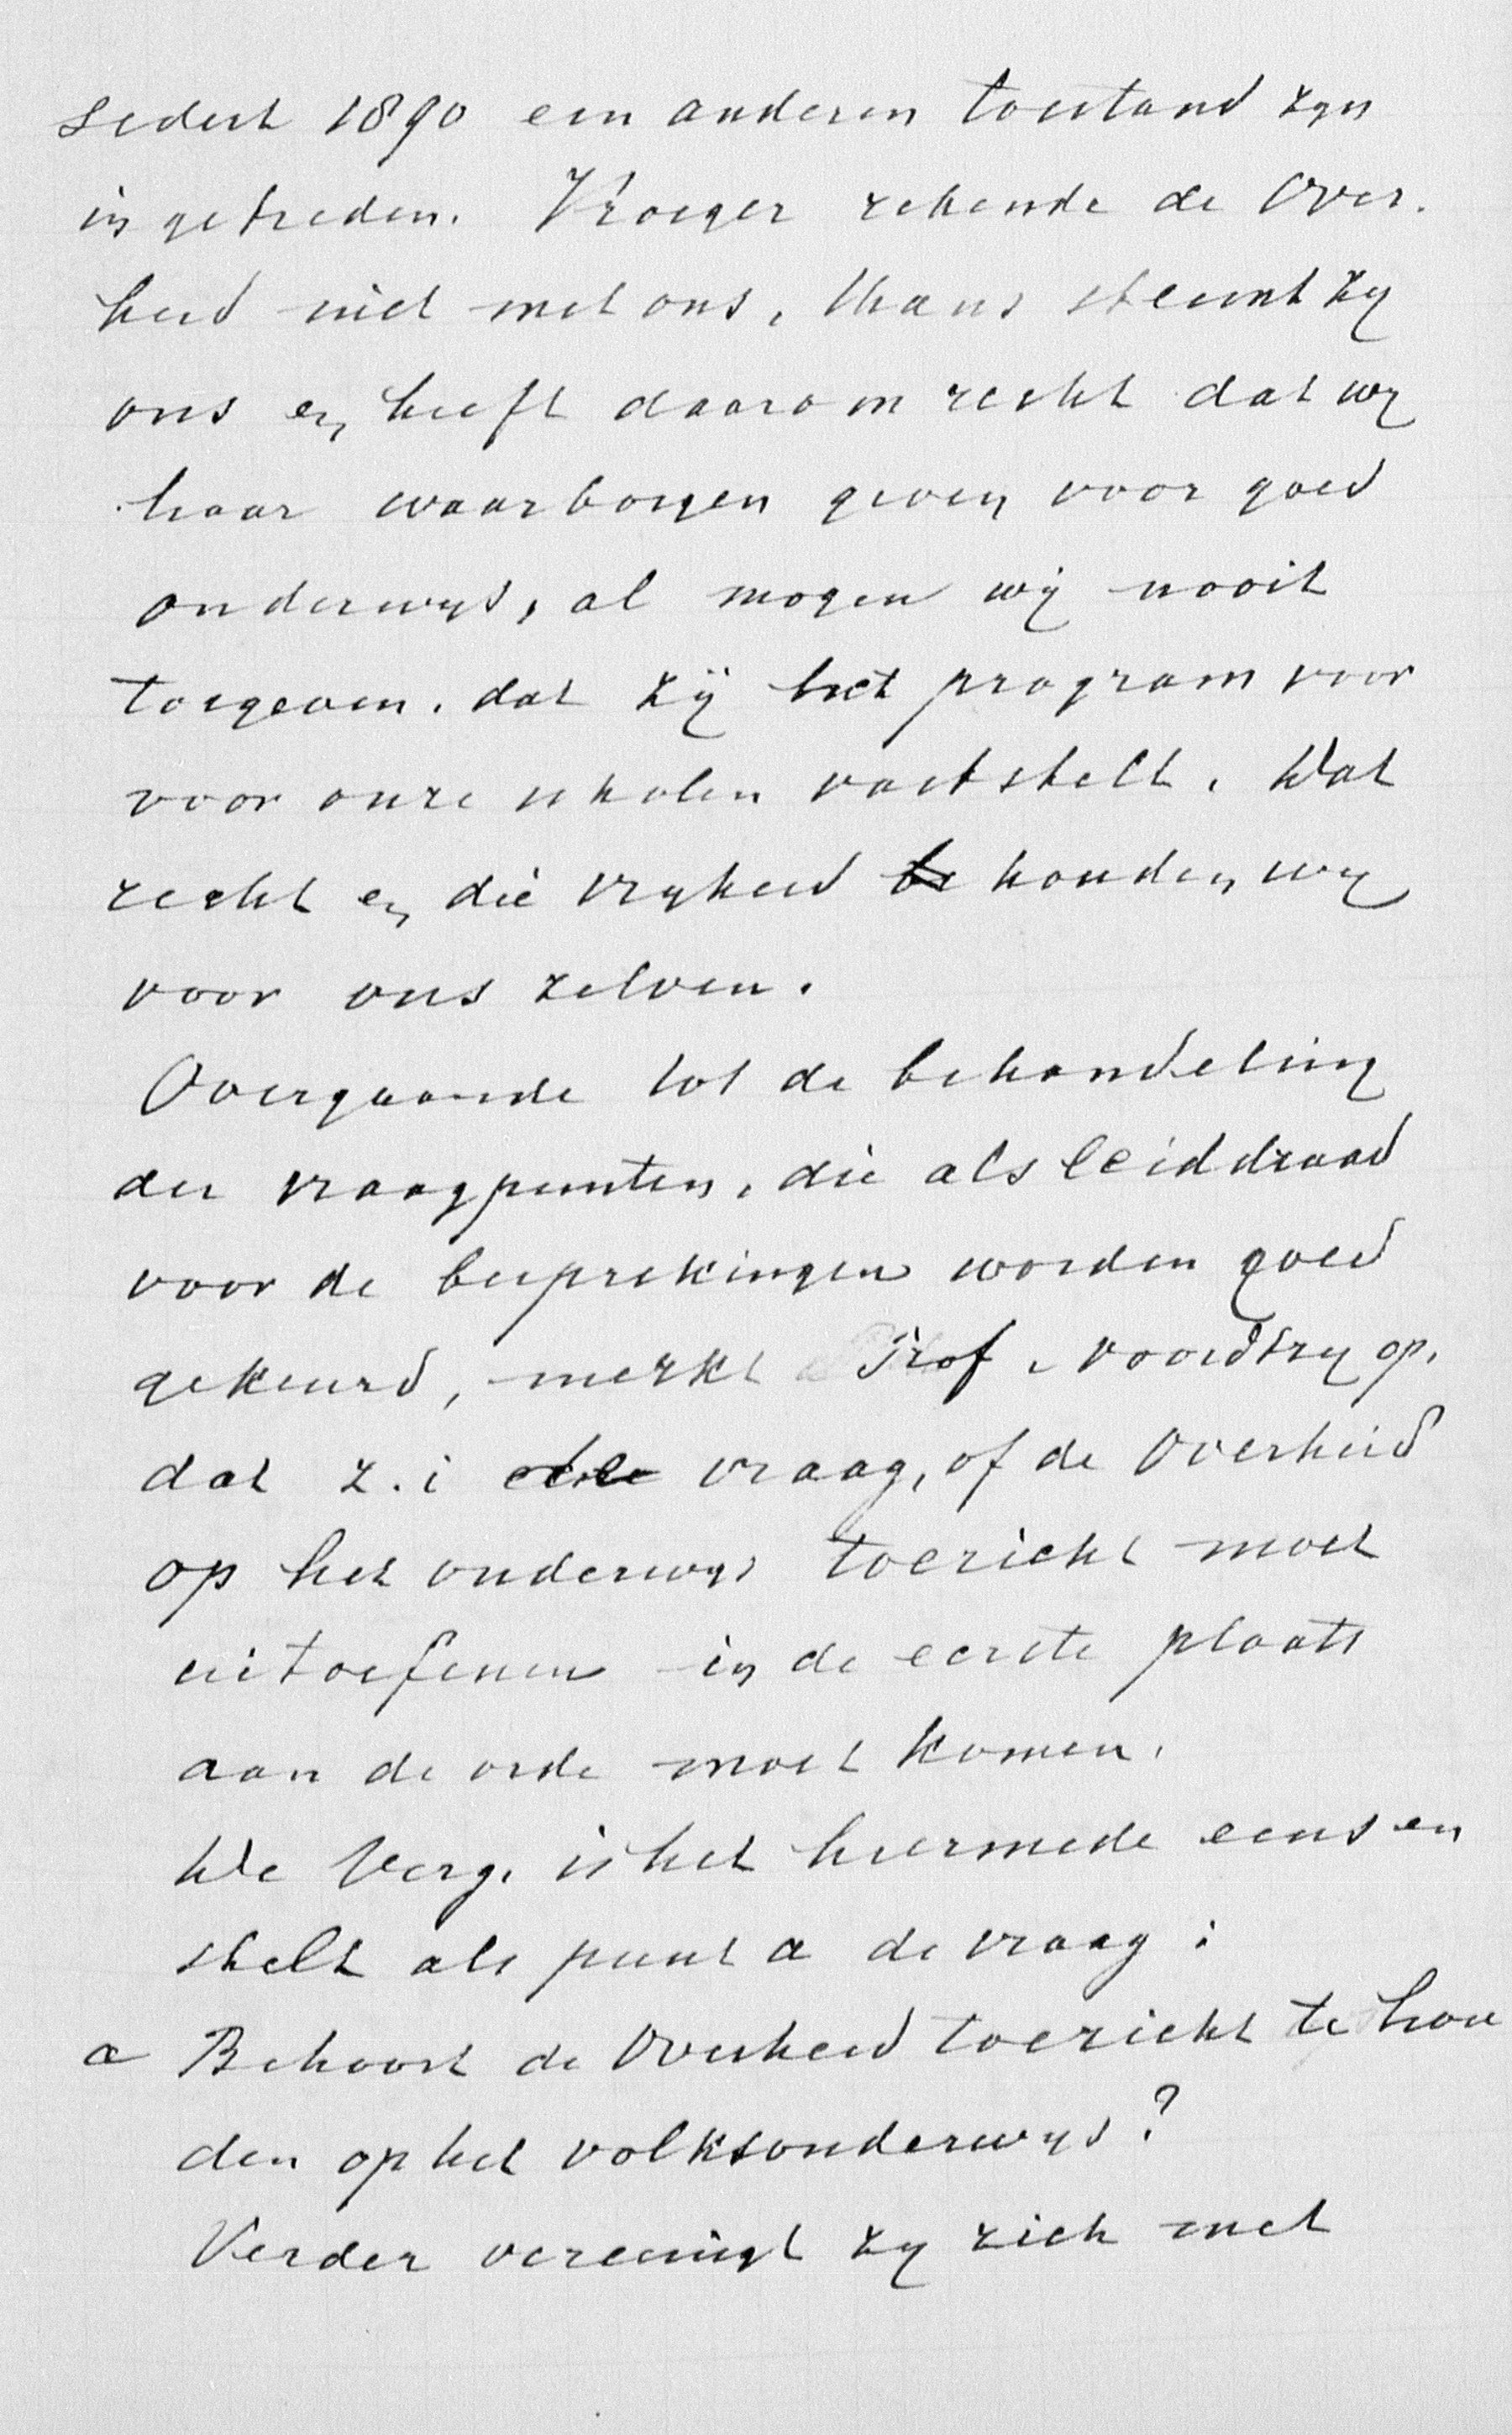 sedert 1890 een anderen toestand zyn
ingetreden. Vroeger rekende de Over-
heid niet met ons, thans steunt zy
ons en heeft daarom recht dat wy
haar waarborgen geven voor goed
onderwys, al mogen wij nooit
toegeven. dat zij het program voor
voor onze scholen vaststelt. Dat
recht en die vryheid houden wy
voor ons zelven.
Overgaande tot de behandeling
der vraagpunten, die als leiddraad
voor de besprekingen worden goed
gekeurd, merkt Prof. op,
dat z. i de vraag, of de Overheid
op het onderwys toezicht moet
uitoefenen in de eerste plaats
aan de orde moet komen.
De Verg. is het hiermede eens en
stelt als punt a de vraag:
a Behoort de Overheid toezicht te hou
den op het volksonderwys?
Verder vereenigt zy zich met